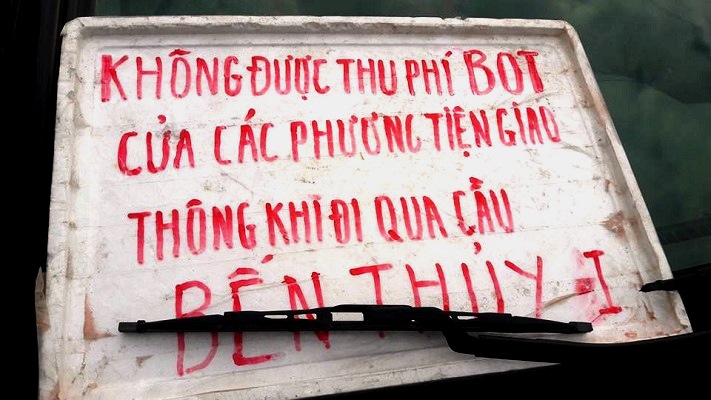 KHÔNG ĐƯỢC THU PHÍ BOT
CỦA CÁC PHƯƠNG TIỆN GIAO
THÔNG KHI ĐI QUA CẦU
BẾN THỦY I